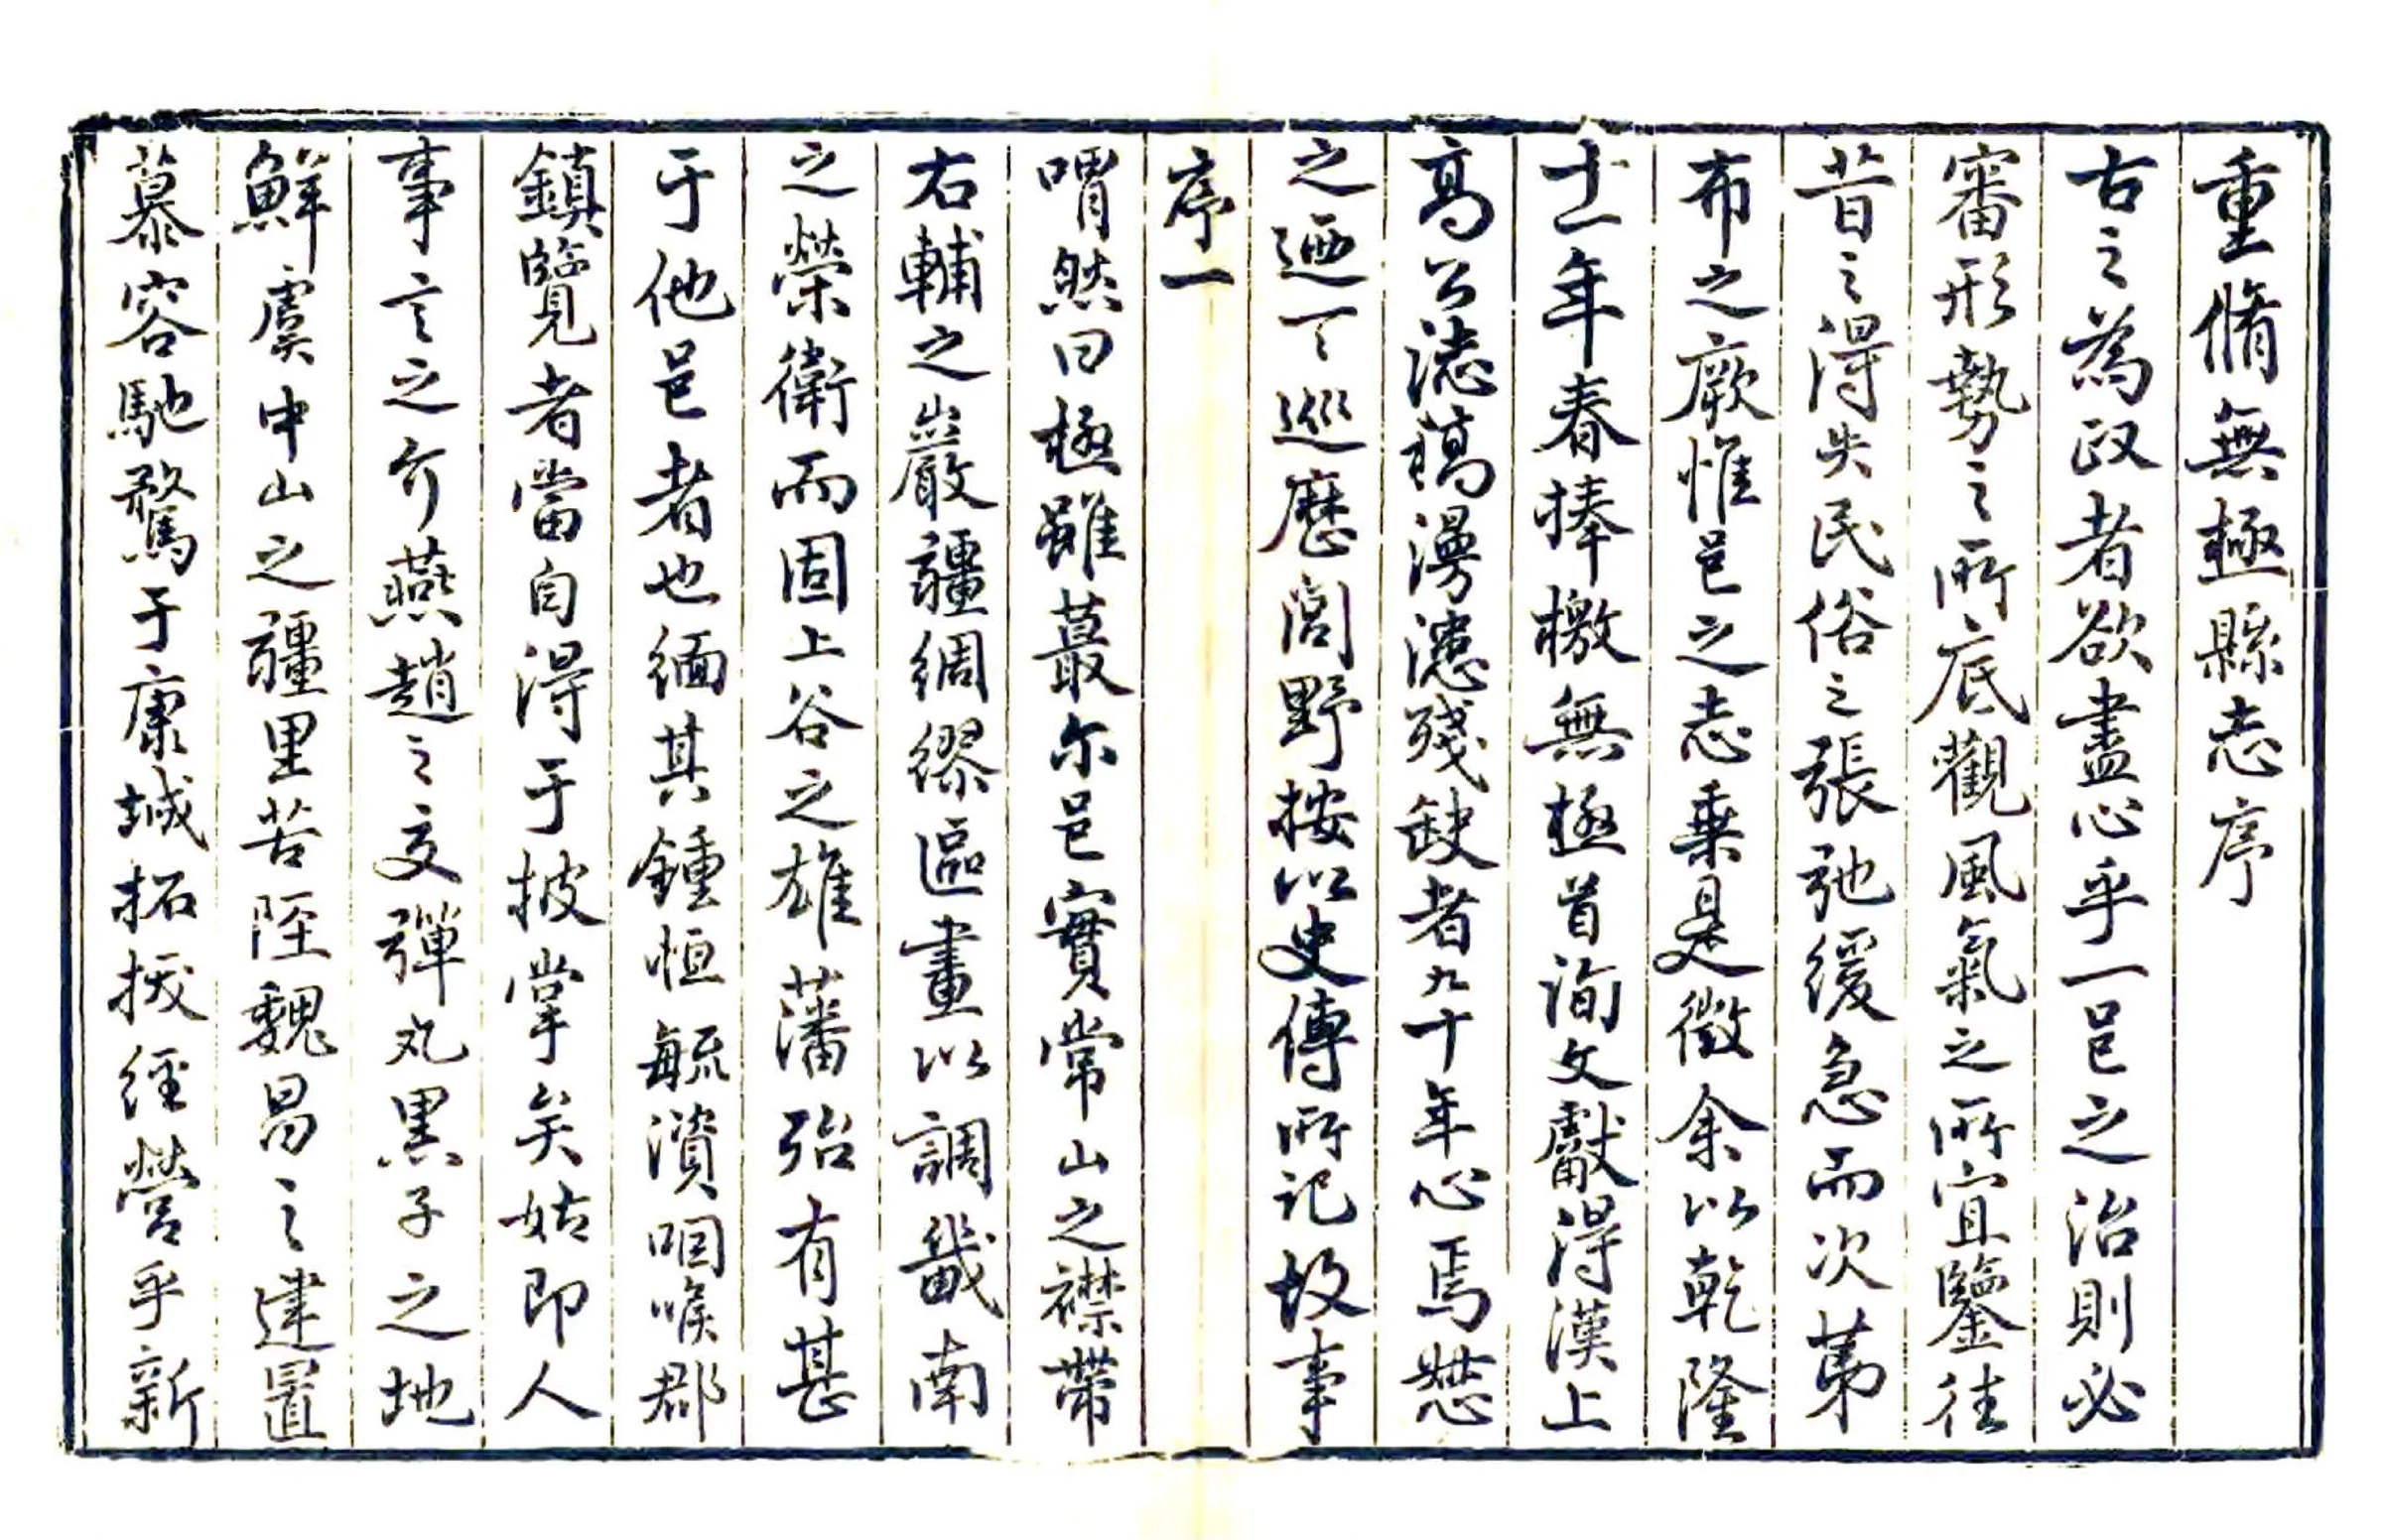 重脩無極縣志序
古之為政者欲盡心乎一邑之治則必
審形勢之所底觀風氣之所宜鑒往
昔之得失民俗之張弛緩急而次第
布之厥惟邑之志乗是徵余以乾隆
十一年春捧檄無極首詢文獻得漢上
高公誌藁漫漶殘缺者九十年心焉惄
之廼下巡歷閭野按以史傳所記故事
序一
喟然曰極雖蕞尔邑實常山之襟帶
右輔之巖疆綢繆區畫以調畿南
之榮衛而固上谷之雄藩殆有甚
于他邑者也緬其鍾恒毓濱咽喉郡
鎮覽者當自得于披掌矣姑即人
事言之介燕趙之交彈丸黑子之地
鮮虞中山之疆里苦陘魏昌之建置
慕容馳騖于康城拓拔經營乎新